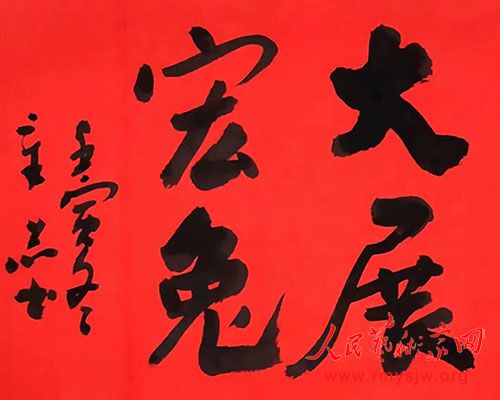 大展
宏兔
壬寅冬
人民藝術家网
www.rmysjw.org